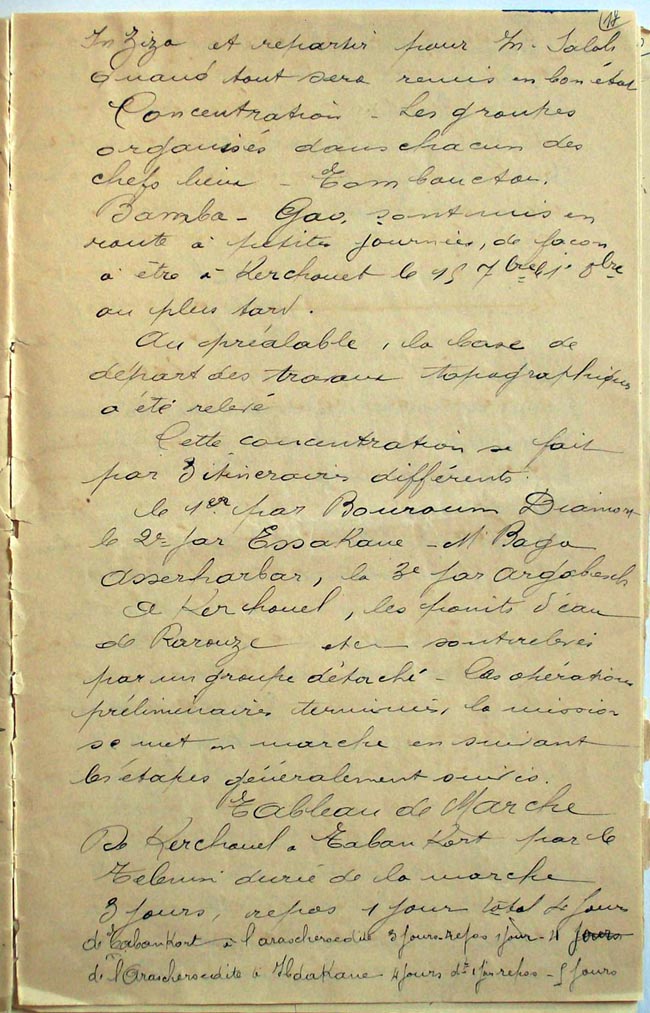 18
In Ziza et repartir pour In-Salah
quand tout sera remis en bon état
Concentration - Les groupes
organisés dans chacun des
chefs lieux - Tombouctou.
Bamba - Gao, sont mis en
route à petites journées, de façon
à être à Kerchouel le 15 7bre le 1er 8bre
au plus tard.
Au préalable, la base de
départ des travaux topographiques
a été relevé
Cette concentration se fait
par 3 itinéraires différents.
le 1er par Bouroum
le 2e par Essakane - M Bago
Asserharbar, le 3e par
A Kerchouel, les points d'eau
de Rarouze sont relevés
par un groupe détaché - Les opérations
préliminaires terminées, la mission
se met en marche en suivant
les étapes généralement suivies.
Tableau de Marche
De Kerchouel à Tabankort par le
Telemsi durée de la marche
3 jours, repos 1 jour total 4 jours
de Tabankort à 3 jours repos 1 jour - 4 jours
de à Ibdakane 4 jours de 1 jour repos - 5 jours